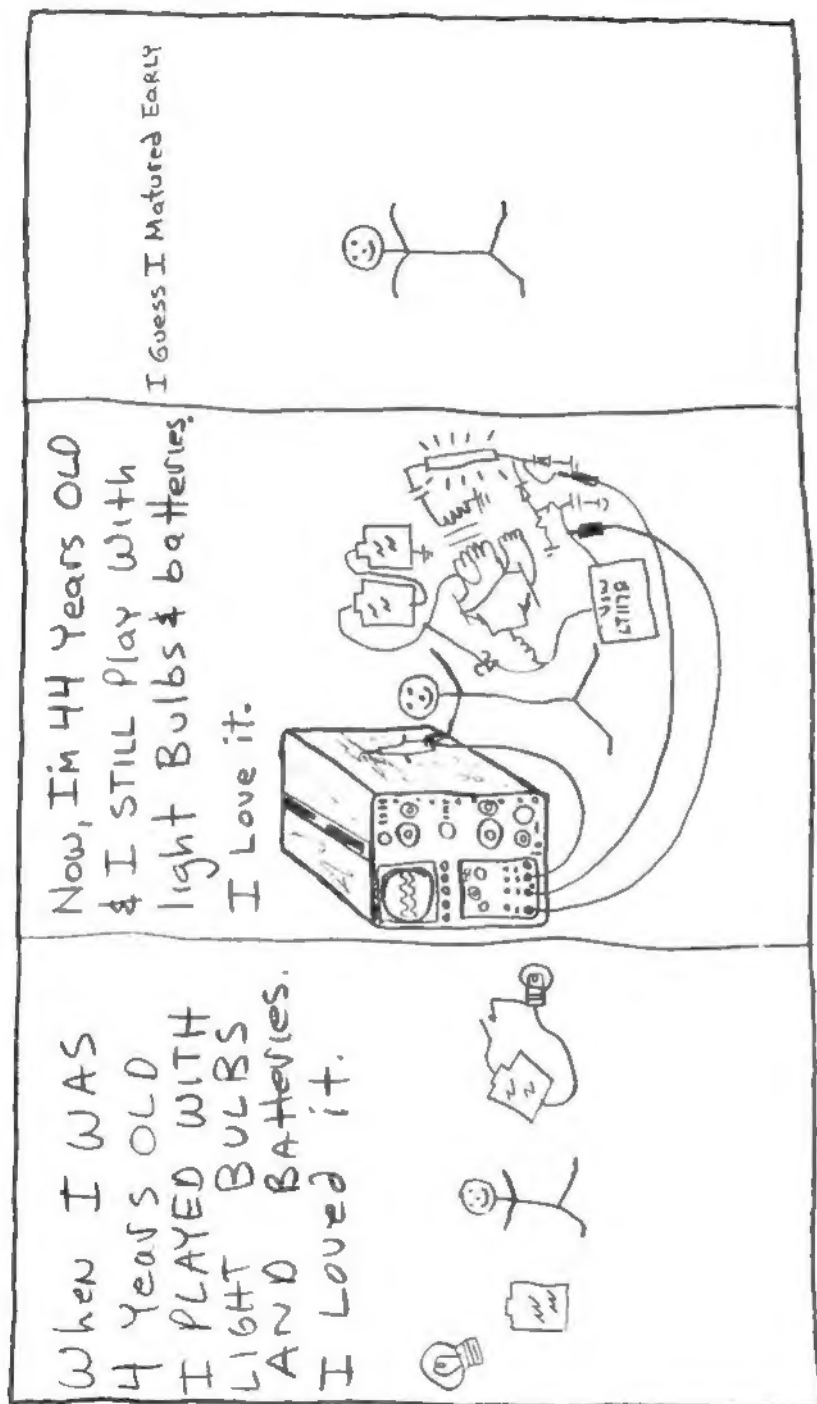 When I WAS
4 Years OLD
I PLAYED WITH
LIGHT BULBS
AND BAtteries.
I Loved it.
Now, I'm 44 Years OLD
& I STILL Play With
light Bulbs & batteries.
I Love it.
I Guess I Matured EaRLY